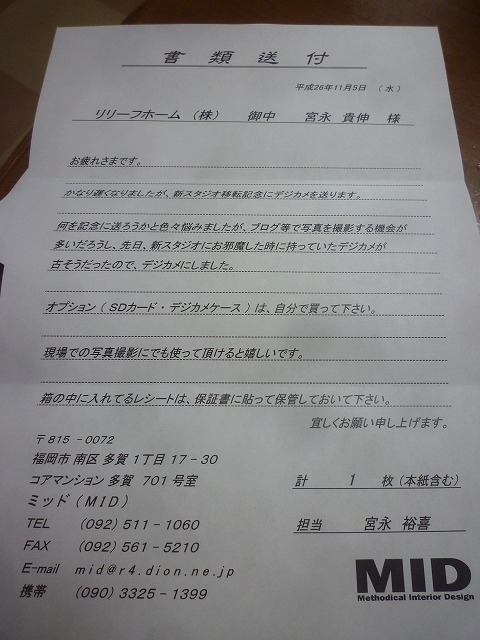 書類送付
平成26年11月5日 （水）
リリーフホーム （株） 御中 宮永 貴伸 様
お疲れさまです。
かなり遅くなりましたが、新スタジオ移転記念にデジカメを送ります。
何を記念に送ろうかと色々悩みましたが、ブログ等で写真を撮影する機会が
多いだろうし、先日、新スタジオにお邪魔した時に持っていたデジカメが
古そうだったので、デジカメにしました。
オプション（ＳＤカード・デジカメケース）は、自分で買って下さい。
現場での写真撮影にでも使って頂けると嬉しいです。
箱の中に入れてるレシートは、保証書に貼って保管しておいて下さい。
宜しくお願い申し上げます。
〒815－0072
福岡市 南区 多賀 1丁目 17－30
コアマンション 多賀 701号室
ミッド（MID）
TEL （092）511－1060
FAX （092）561－5210
E-mail mid@r4.dion.ne.jp
携帯 （090）3325－1399
計 1 枚（本紙含む）
担当 宮永 裕喜
MID
Methodical Interior Design